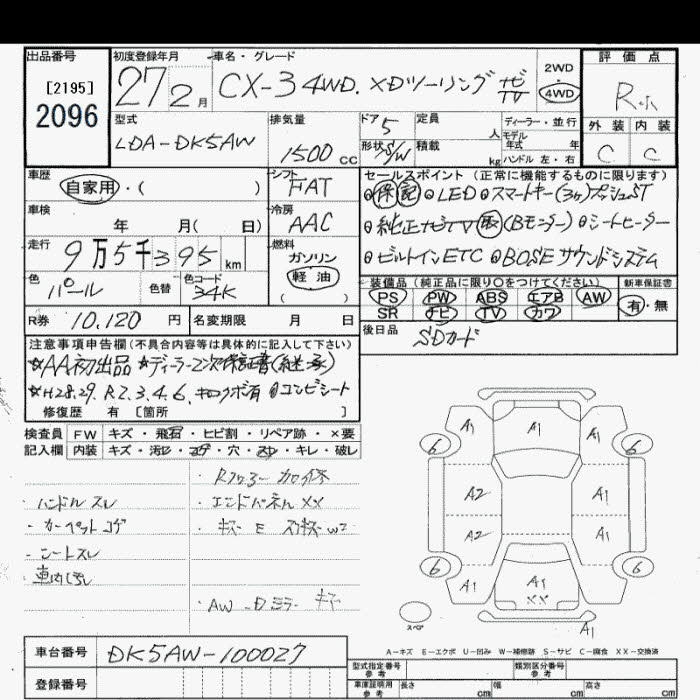 出品番号
[2195]
2096
初度登録年月
27年2月
車名・グレード
CX-3 4WD. XDツーリング ナビ TV
2WD
・
4WD
評価点
R
外装 内装
C C
型式
LDA-DK5AW
排気量
1500 cc
ドア 5
形状 S/W
定員 人
積載 kg
ディーラー・並行
モデル年式 年
ハンドル 左・右
車歴
自家用・( )
シフト
FAT
車検
年 月( 日)
冷房
AAC
走行
9万5千395 km
燃料
ガソリン
軽油
( )
色
パール
色替
色コード
34K
セールスポイント (正常に機能するものに限ります)
保記 LED スマートキー(3ケ)プッシュST
純正ナビTV 取 (Bモニター) シートヒーター
ビルトインETC BOSEサウンドシステム
装備品 (純正品に限り○をつけてください)
PS PW ABS エアB AW
SR ナビ TV カワ
新車保証書
有・無
R券 10,120 円
名変期限 月 日
後日品 SDカード
注意事項申告欄(不具合内容等は具体的に記入して下さい)
☆AA初出品 ☆ディーラー2次保証書(継承)
☆H28.29. R2.3.4.6. キロクボ有 コンビシート
修復歴 有 [箇所 ]
検査員記入欄
FW キズ・飛石・ヒビ割・リペア跡・×要
内装 キズ・汚レ・コゲ・穴・スレ・キレ・破レ
・ハンドルスレ
・カーペットコゲ
・シートスレ
・エンドパネルXX
・AW -Dミラー キズ
A1 A1 A1
6 6
A2 A1
A2 A1
6 6
A1 A1 XX A1
A1
スペア
A-キズ E-エクボ U-凹み W-補修跡 S-サビ C-腐食 XX-交換済
車台番号 DK5AW-100027
登録番号
型式指定番号 参考
類別区分番号 参考
車庫証明用 参考 長さ cm 幅 cm 高さ cm